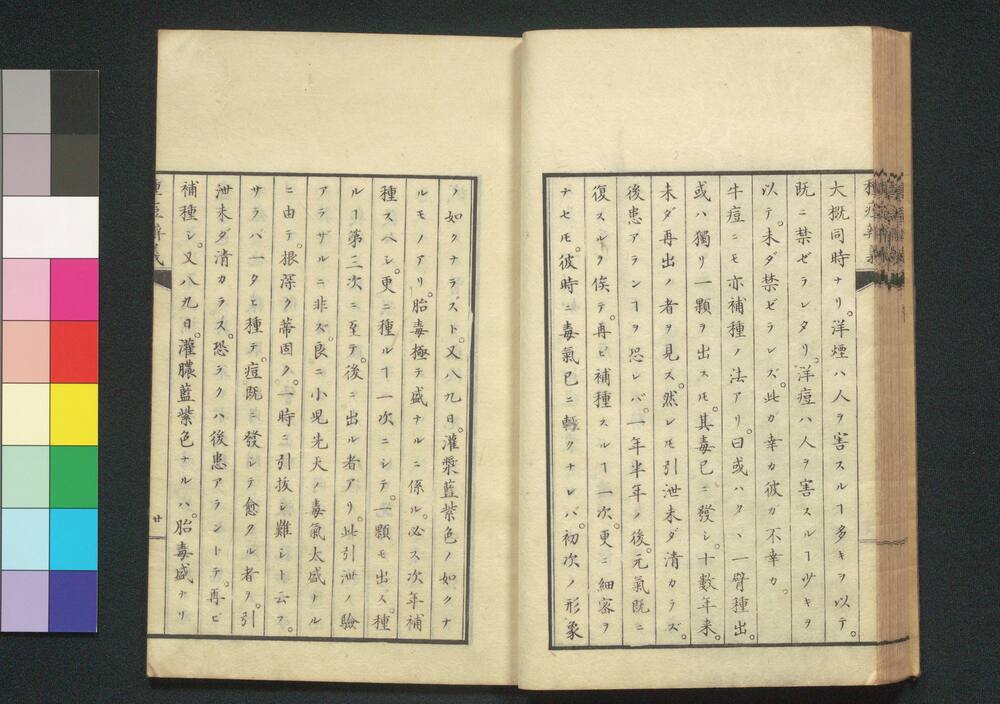 大概同時ナリ。洋煙ハ人ヲ害スルヿ多キヲ以テ。
既ニ禁ゼラレタリ。洋痘ハ人ヲ害スルヿ少キヲ
以テ。未ダ禁ゼラレズ。此ガ幸カ彼ガ不幸カ。
牛痘ニモ亦補種ノ法アリ。曰或ハタヽ一臂種出。
或ハ獨リ一顆ヲ出スモ。其毒已ニ發シ。十數年来。
未ダ再出ノ者ヲ見ス。然レモ引泄未ダ清カラズ。
後患アランヿヲ恐レバ。一年半年ノ後。元氣既ニ
復スルヲ俟テ。再ビ補種スルヿ一次。更ニ細密ヲ
ナセモ。彼時ニ毒氣已ニ輕クナレバ。初次ノ形象
ノ如クナラズト。又八九日。灌漿藍紫色ノ如クナ
ルモノアリ。胎毒極テ盛ナルニ係ル。必ス次年補
種スベシ。更ニ種ルヿ一次ニシテ。一顆モ出ズ。種
ルヿ第三次ニ至テ。後ニ出ル者アリ。此引泄ノ驗
アラザルニ非ズ。良ニ小児先天ノ毒氣太盛ナル
ニ由テ。根深ク蒂固ク。一時ニ引抜シ難シト云フ。
サラバ一タヒ種テ。痘既ニ發シテ愈タル者ヲ。引
泄未ダ清カラス。恐ラクハ後患アラントテ。再ビ
補種シ。又八九日。灌膿藍紫色ナルハ。胎毒盛ナリ
種痘辨義
廿